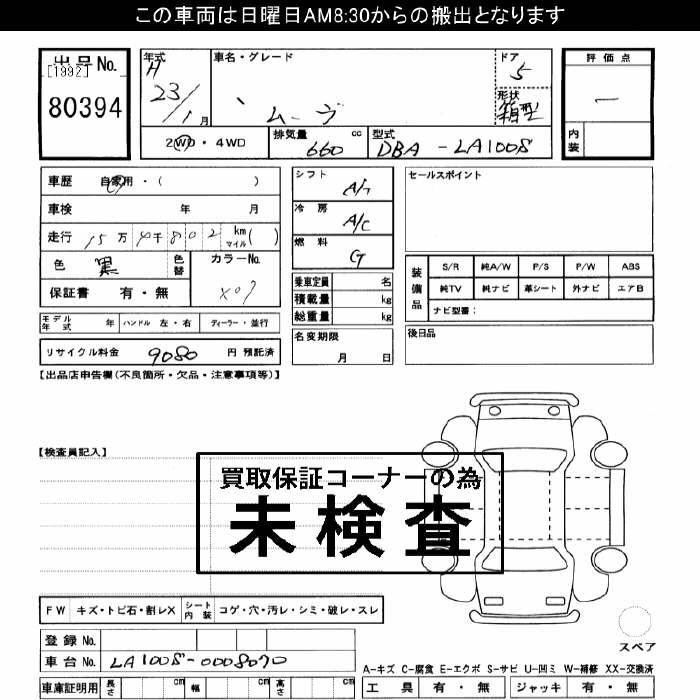 この車両は日曜日AM8:30からの搬出となります
出品No.
[1992]
80394
年式
H
23/1月
車名・グレード
ムーヴ
ドア
5
形状
箱型
評価点
ー
内装
2WD・4WD
排気量 660 cc
型式 DBA-LA100S
車歴 自家用・( )
車検 年 月
走行 15万 4千 802 km マイル( )
色 黒
色替
カラーNo.
X07
保証書 有・無
モデル年式 年
ハンドル 左・右
ディーラー・並行
リサイクル料金 9080 円 預託済
シフト
冷房 A/C
燃料 G
乗車定員 名
積載量 kg
総重量 kg
名変期限
月 日
セールスポイント
装備品
S/R 純A/W P/S P/W ABS
純TV 純ナビ 革シート 外ナビ エアB
ナビ型番:
後日品
【出品店申告欄(不良箇所・欠品・注意事項等)】
【検査員記入】
買取保証コーナーの為
未検査
FW キズ・トビ石・割レX
シート内装 コゲ・穴・汚レ・シミ・破レ・スレ
登録No.
車台No. LA100S-0008070
車庫証明用 長さ cm 幅 cm 高さ cm
スペア
A-キズ C-腐食 E-エクボ S-サビ U-凹ミ W-補修 XX-交換済
工具 有・無 ジャッキ 有・無